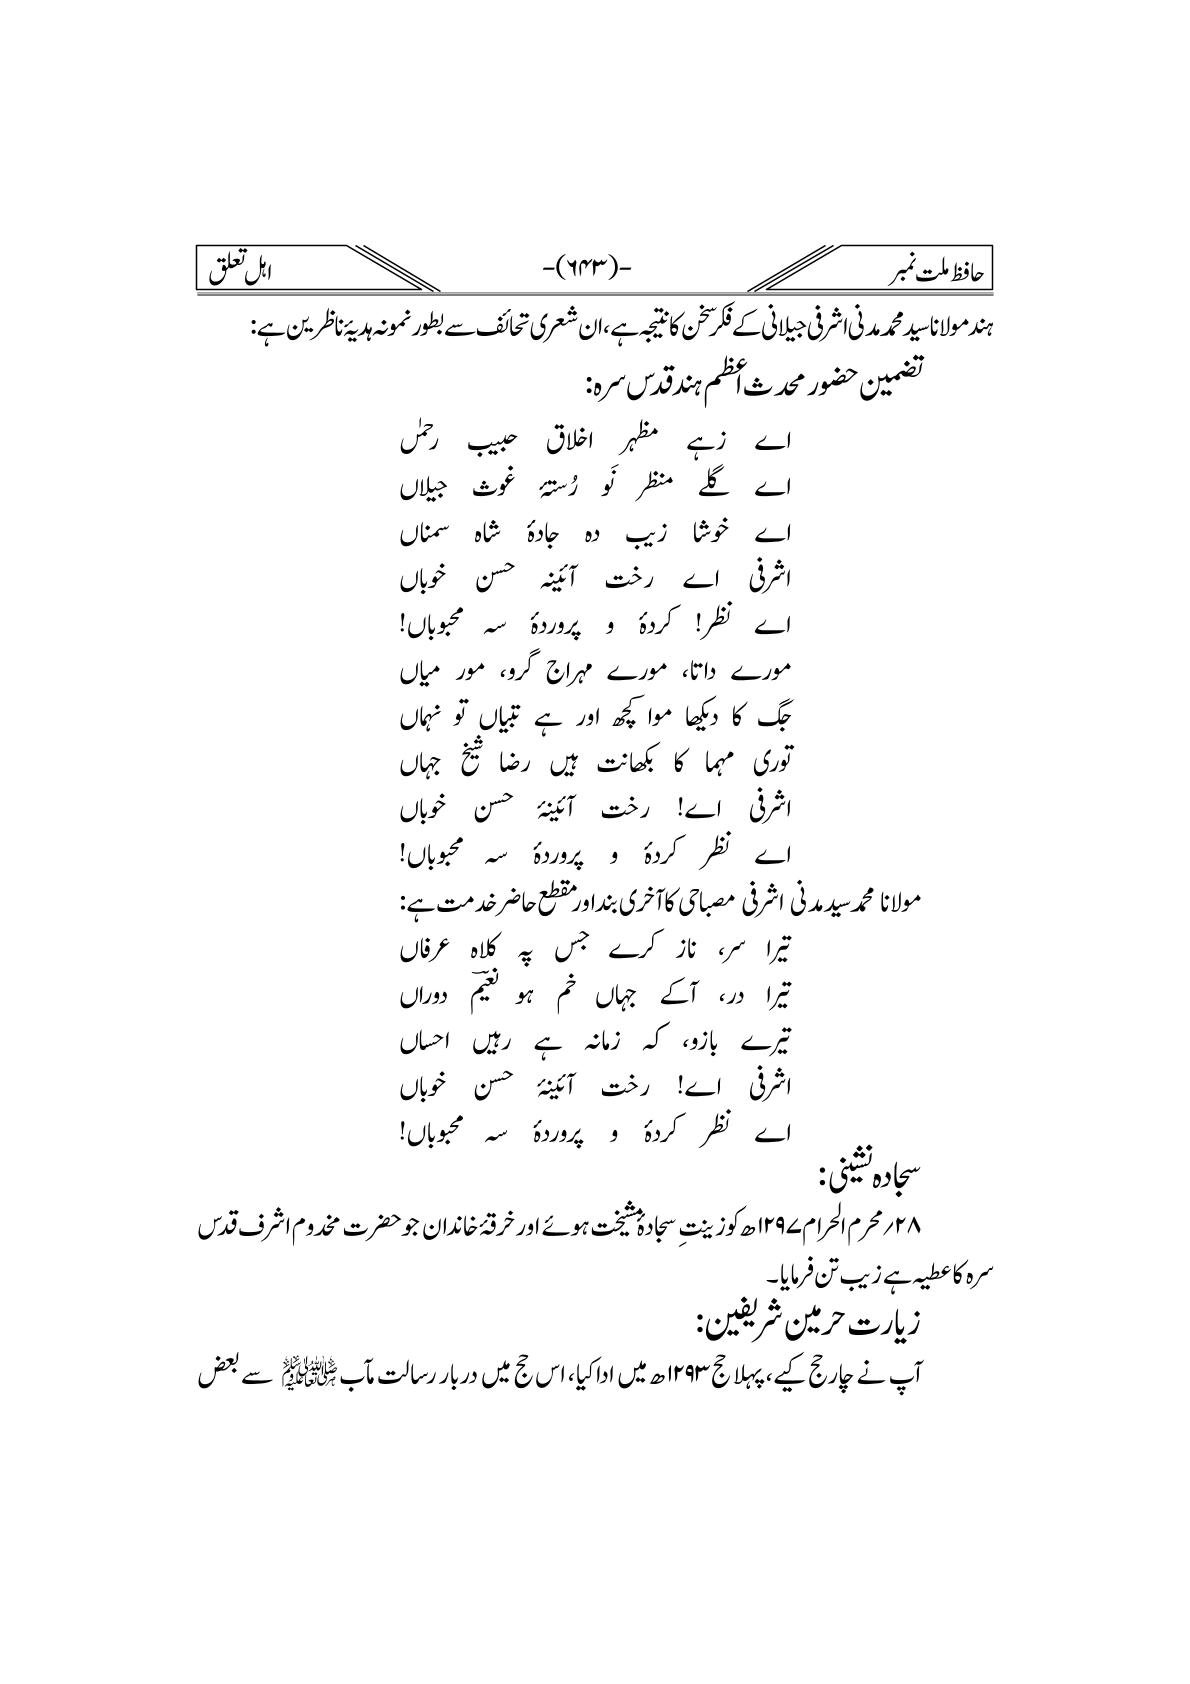 حافظ ملت نمبر -(۶۴۳)- اہل تعلق
ہند مولانا سید محمد مدنی اشرفی جیلانی کے فکر سخن کا نتیجہ ہے، ان شعری تحائف سے بطور نمونہ ہدیۂ ناظرین ہے:
تضمین حضور محدث اعظم ہند قدس سرہ:
اے زہے مظہر اخلاق حبیب رحمٰں
اے گلے منظر نَو رُستۂ غوث جیلاں
اے خوشا زیب دہ جادۂ شاہ سمناں
اشرفی اے رخت آئینہ حسن خوباں
اے نظر! کردۂ و پروردۂ سہ محبوباں!
مورے داتا، مورے مہراج گرو، مور میاں
جگ کا دیکھا موا کچھ اور ہے تبیاں تو نہاں
توری مہما کا بکھانت ہیں رضا شیخ جہاں
اشرفی اے! رخت آئینۂ حسن خوباں
اے نظر کردۂ و پروردۂ سہ محبوباں!
مولانا محمد سید مدنی اشرفی مصباحی کا آخری بند اور مقطع حاضر خدمت ہے:
تیرا سر، ناز کرے جس پہ کلاہ عرفاں
تیرا در، آکے جہاں خم ہو نعیمؔ دوراں
تیرے بازو، کہ زمانہ ہے رہیں احساں
اشرفی اے! رخت آئینۂ حسن خوباں
اے نظر کردۂ و پروردۂ سہ محبوباں!
سجادہ نشینی:
۲۸؍ محرم الحرام ۱۲۹۷ھ کو زینتِ سجادۂ مشیخت ہوئے اور خرقۂ خاندان جو حضرت مخدوم اشرف قدس
سرہ کا عطیہ ہے زیب تن فرمایا۔
زیارت حرمین شریفین:
آپ نے چار حج کیے، پہلا حج ۱۲۹۳ھ میں ادا کیا، اس حج میں دربار رسالت مآب ﷺ سے بعض